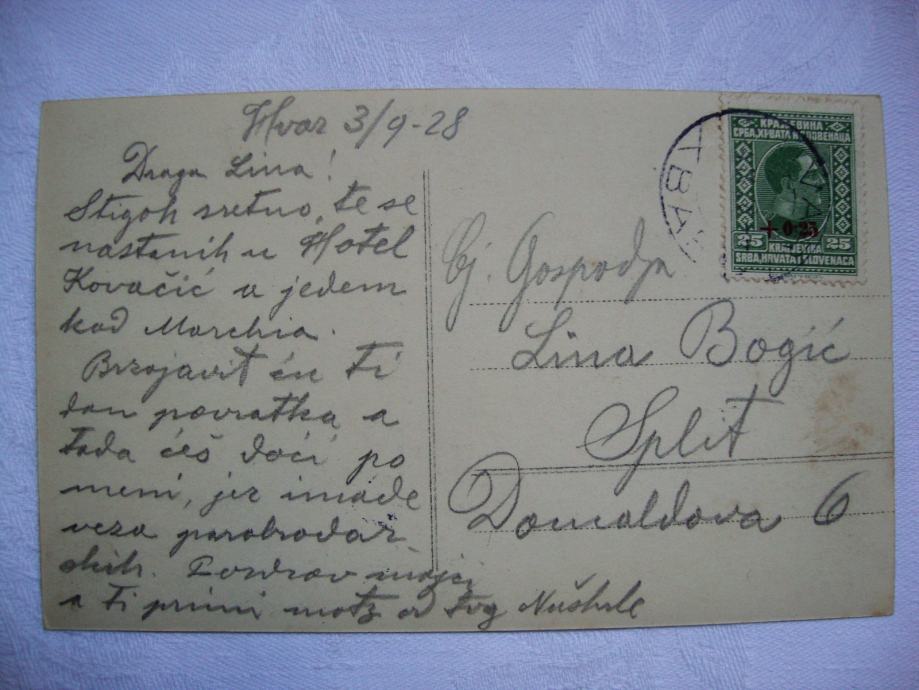 Hvar 3/9-28
Draga Lina!
Stigoh sretno, te se
nastanih u Hotel
Kovačić a jedem
kod Marchia.
Brzojavit ću Ti
dan povratka a
tada ćeš doći po
meni, jer imade
veza parobrodar
skih. Pozdrav mojoj
a Ti primi od tvog
Gospodja
Lina Bogić
Split
Domaldova 6
КРАЉЕВИНА
СРБА, ХРВАТА И СЛОВЕНАЦА
+ 0·25
25 KRALJEVINA 25
SRBA, HRVATA I SLOVENACA